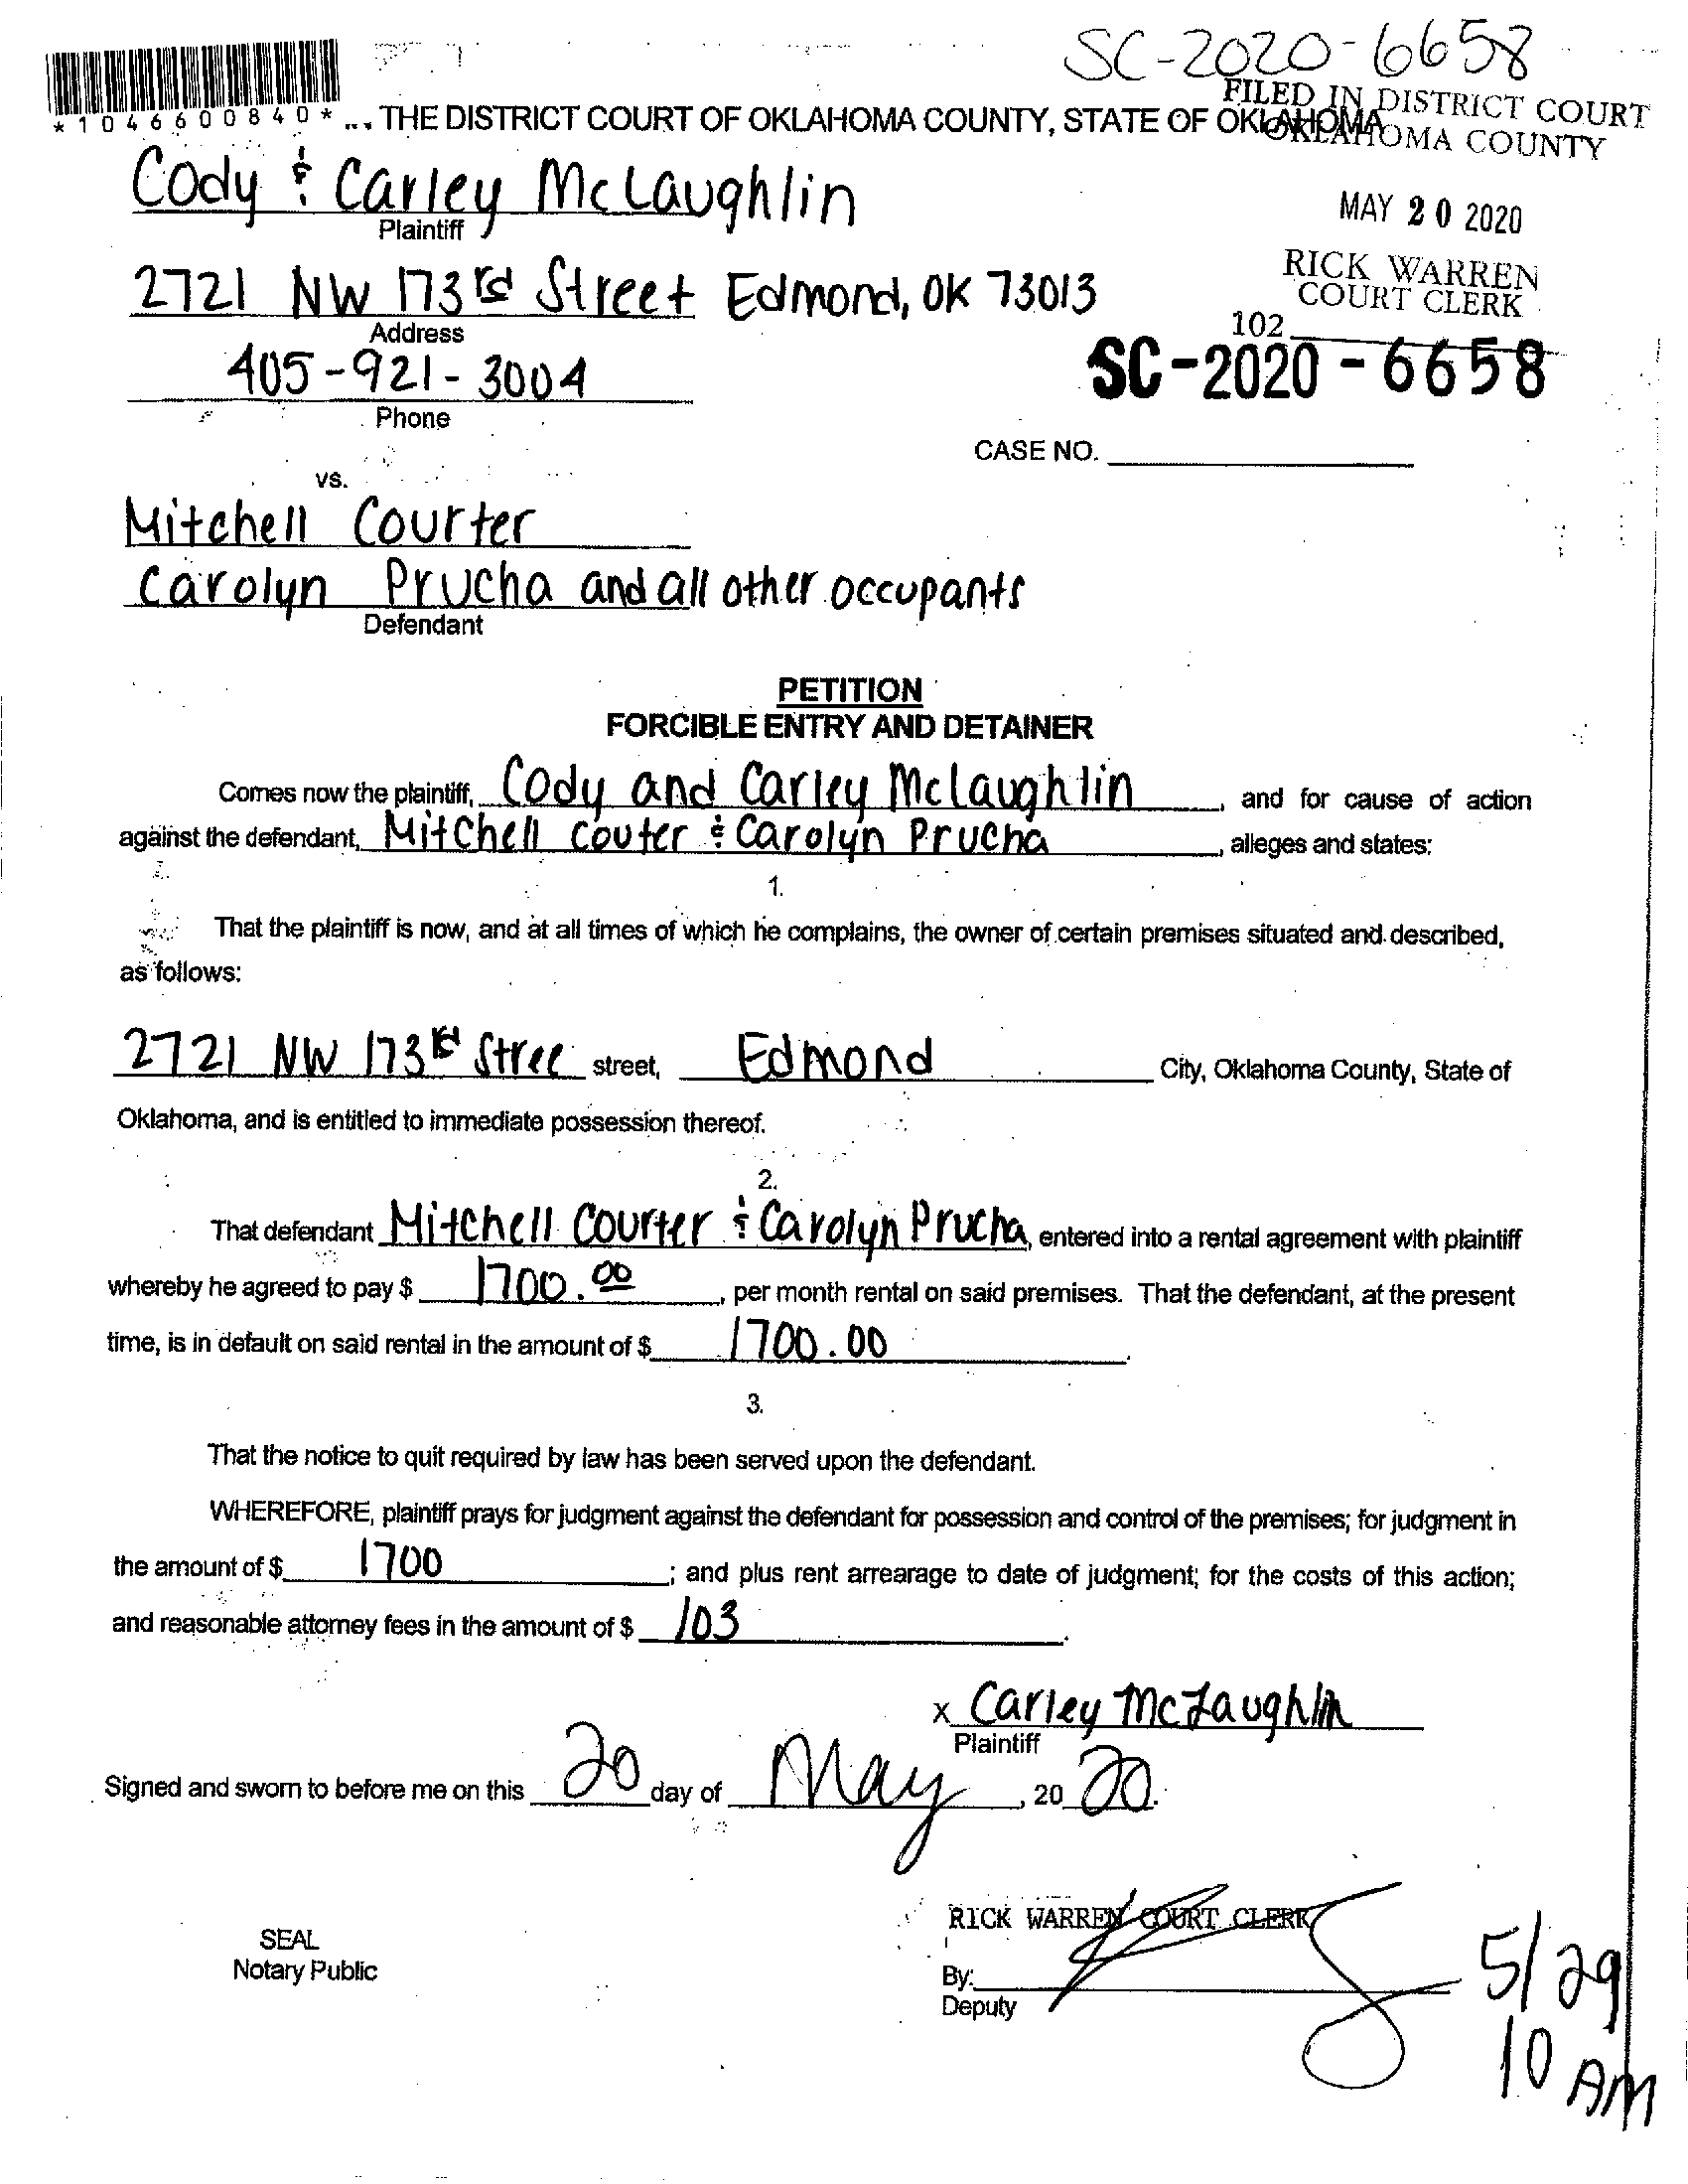 SC-2020-6658
FILED IN DISTRICT COURT
OKLAHOMA COUNTY
*1046600840* ... THE DISTRICT COURT OF OKLAHOMA COUNTY, STATE OF OKLAHOMA
Cody & Carley McLaughlin
Plaintiff
MAY 20 2020
2721 NW 173rd Street Edmond, OK 73013
Address
RICK WARREN
COURT CLERK
102
405-921-3004
Phone
SC-2020-6658
CASE NO.
vs.
Mitchell Courter
Carolyn Prucha and all other occupants
Defendant
PETITION
FORCIBLE ENTRY AND DETAINER
Comes now the plaintiff, Cody and Carley Mclaughlin, and for cause of action
against the defendant, Mitchell Couter & Carolyn Prucha, alleges and states:
1.
That the plaintiff is now, and at all times of which he complains, the owner of certain premises situated and described,
as follows:
2721 NW 173rd Stree street, Edmond City, Oklahoma County, State of
Oklahoma, and is entitled to immediate possession thereof.
2.
That defendant Mitchell Courter & Carolyn Prucha, entered into a rental agreement with plaintiff
whereby he agreed to pay $ 1700.00, per month rental on said premises. That the defendant, at the present
time, is in default on said rental in the amount of $ 1700.00.
3.
That the notice to quit required by law has been served upon the defendant.
WHEREFORE, plaintiff prays for judgment against the defendant for possession and control of the premises; for judgment in
the amount of $ 1700; and plus rent arrearage to date of judgment; for the costs of this action;
and reasonable attorney fees in the amount of $ 103.
x Carley McLaughlin
Plaintiff
Signed and sworn to before me on this 20 day of May, 20 20.
RICK WARREN COURT CLERK
SEAL
Notary Public
By:
Deputy
5/29
10 AM